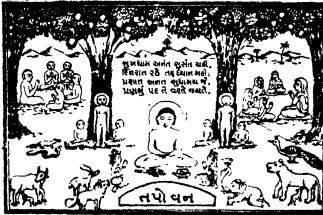 સુખધામ અનંત સુસંત ચહી,
દિનરાત રહે તદ્ ધ્યાન મહીં,
પ્રશાંત અનંત સુધામય જે,
પ્રણમું પદ તે વરતે જયતે.
તપોવન